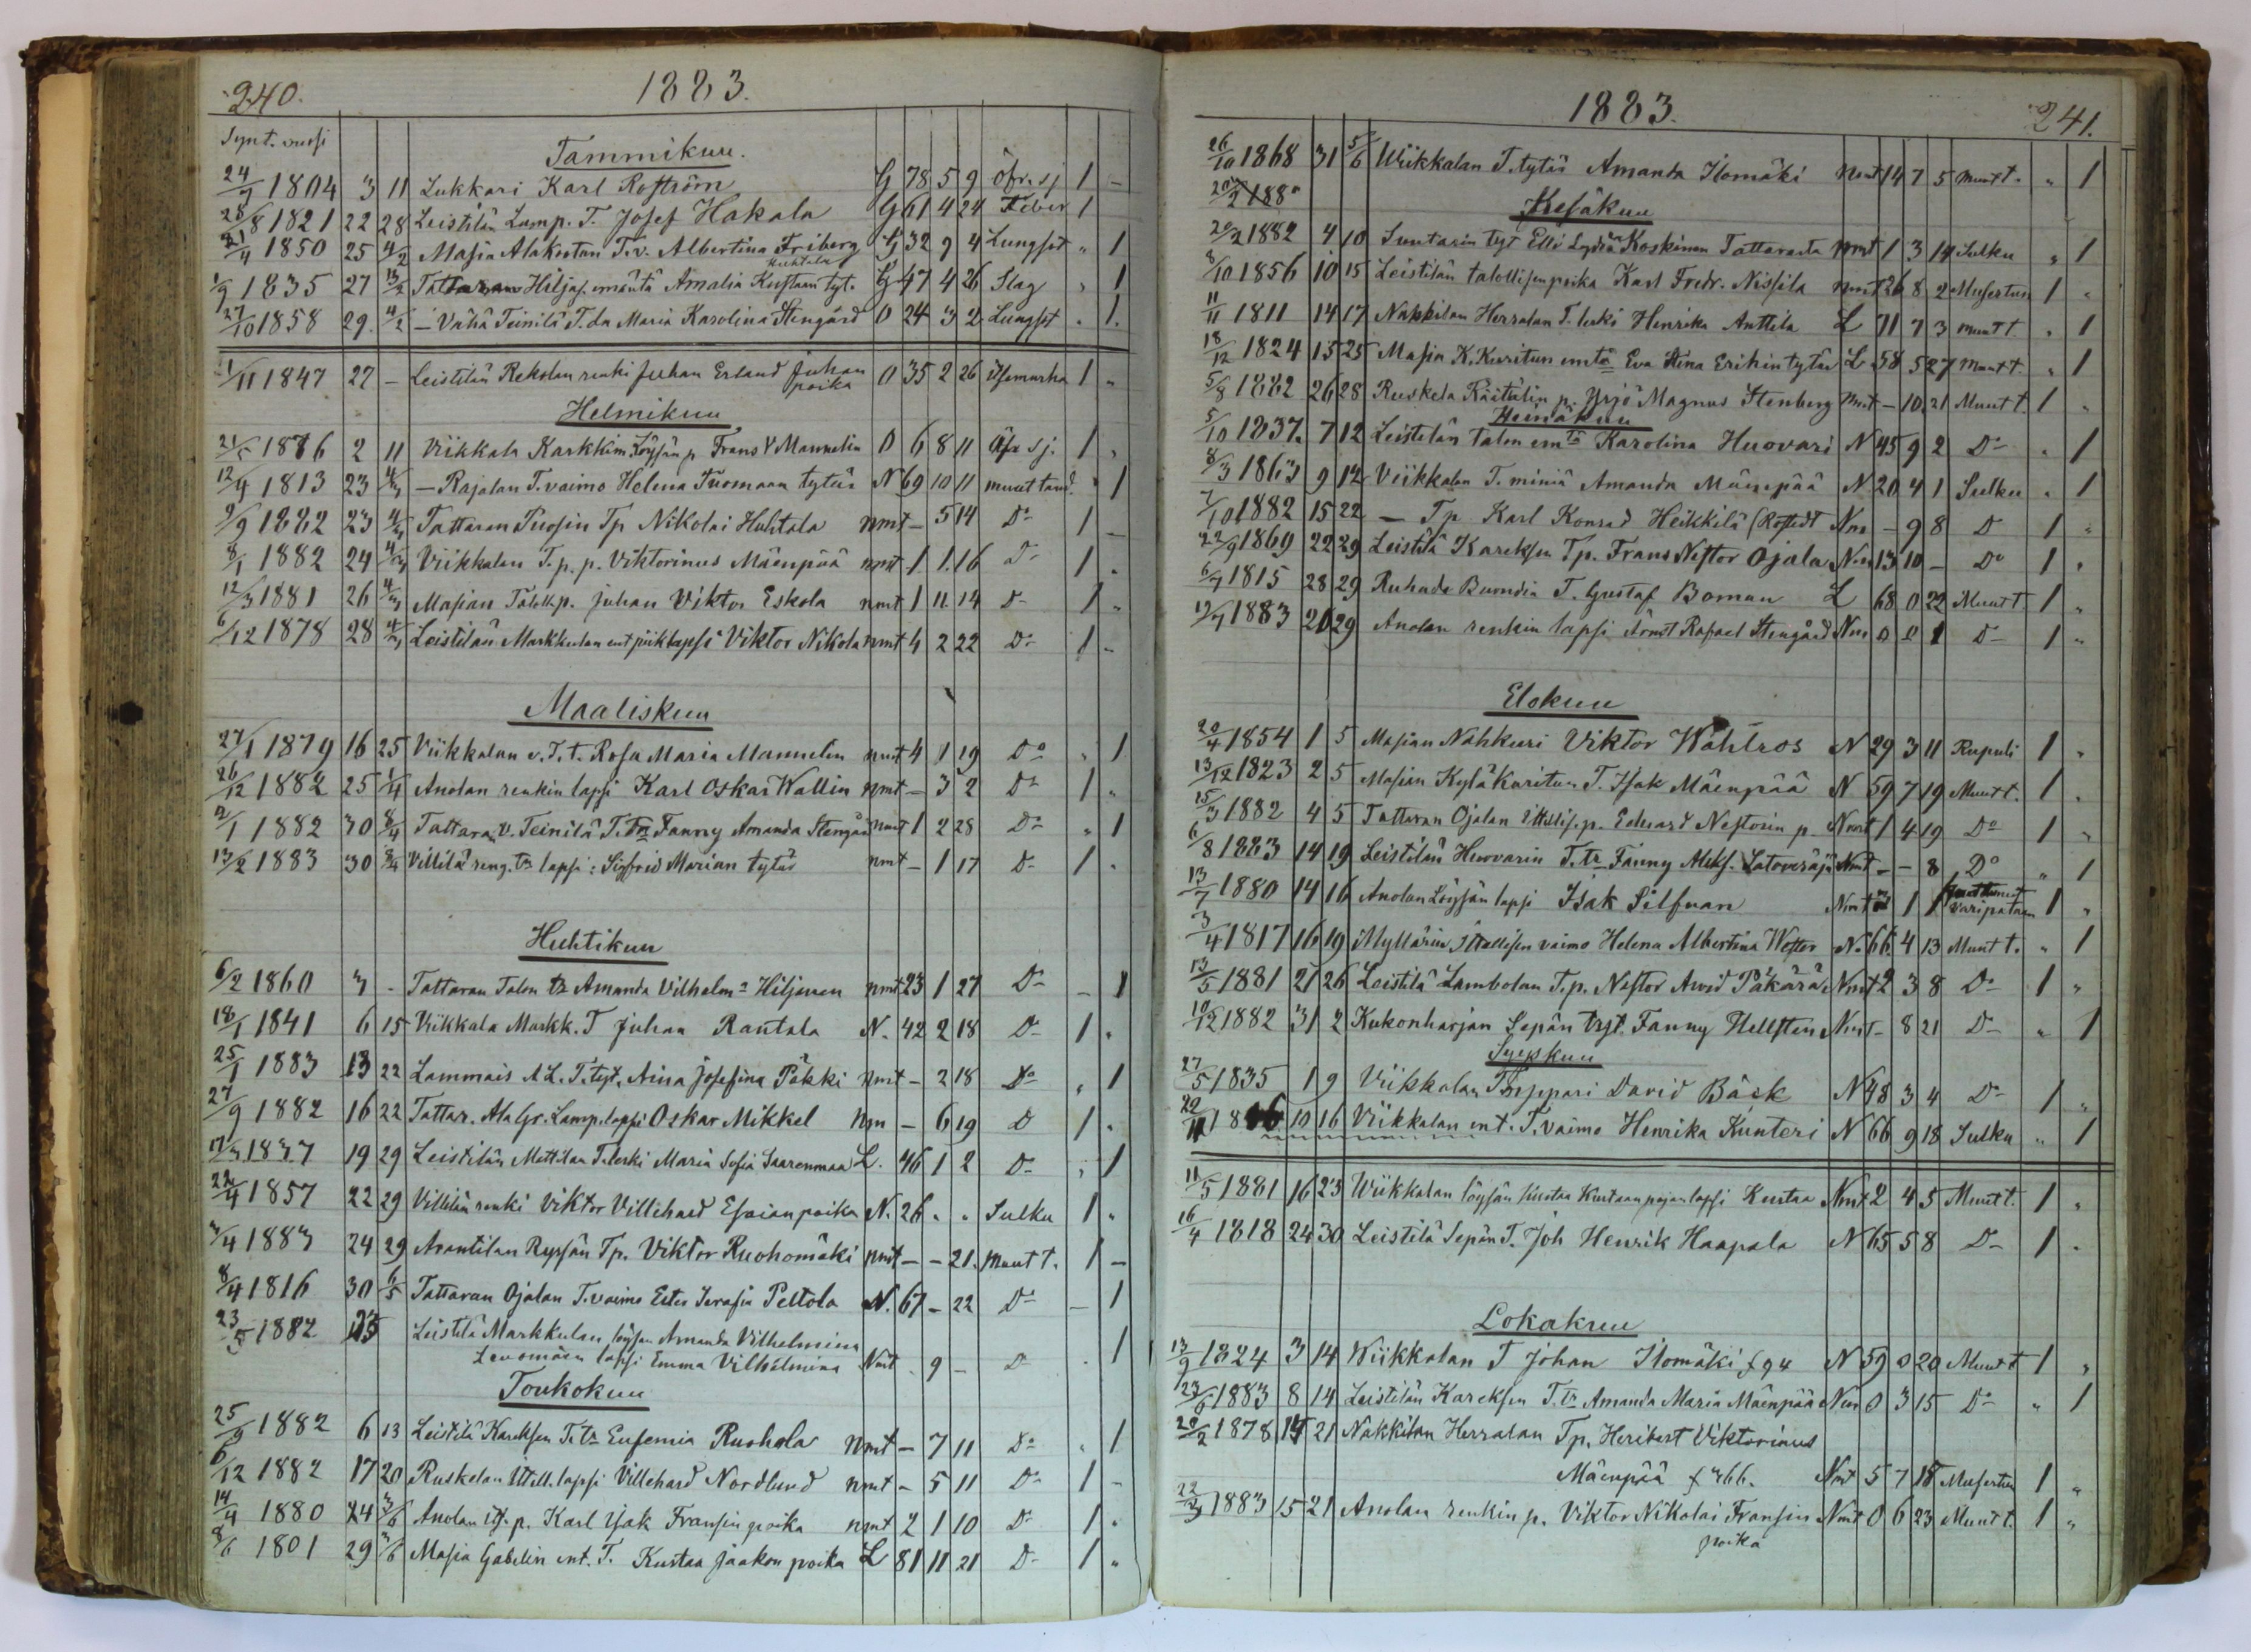 240.
1883.
Synt. vuosi
Tammikuu.
24/7 1804 3 11 Lukkari Karl Roström G 78 5 9 öfr. sj 1 -
28/8 1821 22 28 Leistilän Lamp. T. Josef Hakala G 61 4 24 Feber 1
21/4 1850 25 4/2 Masia Alakortan T.v. Albertina Friberg G 32 9 4 Lungsot " 1
Huhtala
1/9 1835 27 13/2 Tattaran Hiljas. emäntä Amalia Kustaan tyt. G 47 4 26 Slag " 1
27/10 1858 29. 4/2 - Vähä Teinilä T. da Maria Karolina Stengård O 24 3 2 Lungsot . 1.
1/11 1847 27 - Leistilän Rekolan renki Juhan Erland Juhan poika O 35 2 26 itsemurha 1 "
Helmikuu
21/5 1876 2 11 Viikkala Karkkim Löysän p Frans V Mannelin O 6 8 11 öfr sj. 1 "
12/4 1813 23 4/3 - Rajalan T. vaimo Helena Tuomaan tytär N 69 10 11 muut taud. " 1
9/9 1882 23 4/3 Tattaran Tuosin Tp Nikolai Huhtala nmt - 5 14 Do 1 -
8/1 1882 24 4/3 Viikkalan T. p. p. Viktorinus Mäenpää nmt 1 1. 16 Do 1 "
12/3 1881 26 4/3 Masian Talollp. Juhan Viktor Eskola nmt 1 11. 14 D- 1 "
6/12 1878 28 4/3 Leistilän Markkulan ent piiklapsi Viktor Nikola nmt 4 2 22 Do 1 "
Maaliskuu
27/1 1879 16 25 Viikkalan v. T. t. Rosa Maria Mannelin nmt 4 1 19 Do " 1
26/12 1882 25 1/4 Anolan renkin lapsi Karl Oskar Wallin nmt - 3 2 Do 1 "
2/1 1882 30 8/4 Tattaran V. Teinilä T. Tr Fanny Amanda Stengård nmt 1 2 28 Do " 1
13/2 1883 30 8/4 Villilä reng. tr lapsi: Sigfrid Marian tytär nmt - 1 17 D- 1 "
Huhtikuu
6/2 1860 3 - Tattaran Talon tr Amanda Vilhelma Hiljanen nmt 23 1 27 Do - 1
18/1 1841 6 15 Viikkala Markk. T Juhan Rantala N. 42 2 18 Do 1 "
25/1 1883 13 22 Lammais A L. T. tyt. Aina Josefina Päkki nmt - 2 18 Do " 1
27/9 1882 16 22 Tattar. Ala Gr. Lamp. lapsi Oskar Mikkel nm - 6 19 D 1 "
17/3 1837 19 29 Leistilän Mattilan T. leski Maria Sofia Saarenmaa L. 46 1 2 Do " 1
22/4 1857 22 29 Villilän renki Viktor Villehard Esaian poika N. 26 " " Sulku 1 "
3/4 1883 24 29 Anantilan Ryssän Tp. Viktor Ruohomäki nmt - - 21. Muut t. 1 -
8/4 1816 30 6/5 Tattaran Ojalan T. vaimo Ester Serafia Peltola N. 67 - 22 Do - 1
23/5 1882 Leistilä Markkulan löysän Amanda Vilhelmina
Levomäen lapsi Emma Vilhelmina Nmt . 9 - D . 1
Toukokuu
25/9 1882 6 13 Leistilä Kareksen T. tr Eufemia Ruohola nmt - 7 11 Do " 1
6/12 1882 17 20 Ruskelan itsell. lapsi Villehard Nordlund nmt - 5 11 Do 1 -
14/4 1880 24 3/6 Anolan its. p. Karl Isak Fransin poika nmt 2 1 10 Do 1 "
8/6 1801 29 3/6 Masia Gabelin ent. T. Kustaa Jaakon poika L 81 11 21 D- 1 "
1883.
241.
26/10 1868 31 5/6 Wiikkalan T. tytär Amanda Ilomäki nmt 14 7 5 Muut t. " 1
Kesäkuu
20/2 1882 4 10 Suutarin tyt Elli Lydia Koskinen Tattarasta nmt 1 3 14 Sulku " 1
8/10 1856 10 15 Leistilän talollisen poika Karl Fredr. Nissila nmt 26 8 2 Musertun 1 "
11/11 1811 14 17 Nakkilan Herralan T. leski Henrika Anttila L 71 7 3 Muut t. " 1
18/12 1824 15 25 Masia K. Kuritun emtä Eva Stina Erikin tytär L 58 5 27 Muut t. " 1
5/8 1882 26 28 Ruskela Räätälin p. Yrjö Magnus Stenberg nmt - 10. 21 Muut t 1 "
Heinäkuu
5/10 1837. 7 12 Leistilän talon emtä Karolina Huovari N 45 9 2 Do " 1
8/3 1863 9 12 Viikkalan T. miniä Amanda Mäenpää N 20 4 1 Sulku " 1
7/10 1882 15 22 - Tp Karl Konrad Heikkilä (Rostedt Nm - 9 8 D 1 "
22/9 1869 22 29 Leistilä Kareksen Tp. Frans Nestor Ojala Nm 13 10 - Do 1 "
6/7 1815 28 29 Ruhade Buondin T. Gustaf Boman L 68 0 22 Muut t 1 "
19/7 1883 20 29 Anolan renkin lapsi Ernst Rafael Stengård Nm 0 0 1 D- 1 "
Elokuu
20/4 1854 1 5 Masian Nahkuri Viktor Wahlros N 29 3 11 Rupuli 1 "
13/12 1823 2 5 Masian Kyläkuritun T. Isak Mäenpää N 59 7 19 Muut t. 1 "
15/3 1882 4 5 Tattaran Ojalan itsellis. p. Eduard Nestorin p. Nmt 1 4 19 Do 1 "
6/8 1883 14 19 Leistilän Huovarin T. tr Fanny Aleks. Latoveräjä Nmt - - 8 Do " 1
13/7 1880 14 16 Anolan Löysän lapsi Isak Silfvan Nmt 3 1 1 varipataan 1 "
3/4 1817 16 19 Myllärin itsellisen vaimo Helena Albertina Wester N. 66 4 13 Muut t. " 1
13/5 1881 21 26 Leistilä Lambolan T. p. Nestor Arvid Päkärä Nmt 2 3 8 Do 1 "
10/12 1882 31 2 Kukonharjan Sepän tyt. Fanny Hellsten Nmt - 8 21 D- " 1
Syyskuu
27/5 1835 1 9 Viikkalan Torppari David Bäck N 48 3 4 Do 1 "
22/11 1816 10 16 Viikkalan ent. T. vaimo Henrika Kunteri N 66 9 18 Sulku " 1
11/5 1881 16 23 Wiikkalan löysän Kustaa Kustaan pojan lapsi Kustaa Nmt 2 4 5 Muut t. 1 "
16/4 1818 24 30 Leistilä Sepän T. Joh Henrik Haapala N 65 5 8 D- 1 "
Lokakuu
13/9 1824 3 14 Wiikkalan T Johan Ilomäki f 94 N 59 0 20 Muut t 1 "
23/6 1883 8 14 Leistilän Kareksen T. tr Amanda Maria Mäenpää Nm 0 3 15 Do " 1
20/2 1878 14 21 Nakkilan Herralan Tp. Heribert Viktorinus
Mäenpää f 366. Nmt 5 7 18 Musertun 1 "
22/3 1883 15 21 Anolan renkin p. Viktor Nikolai Fransin Nmt 0 6 23 Muut t. 1 "
poika